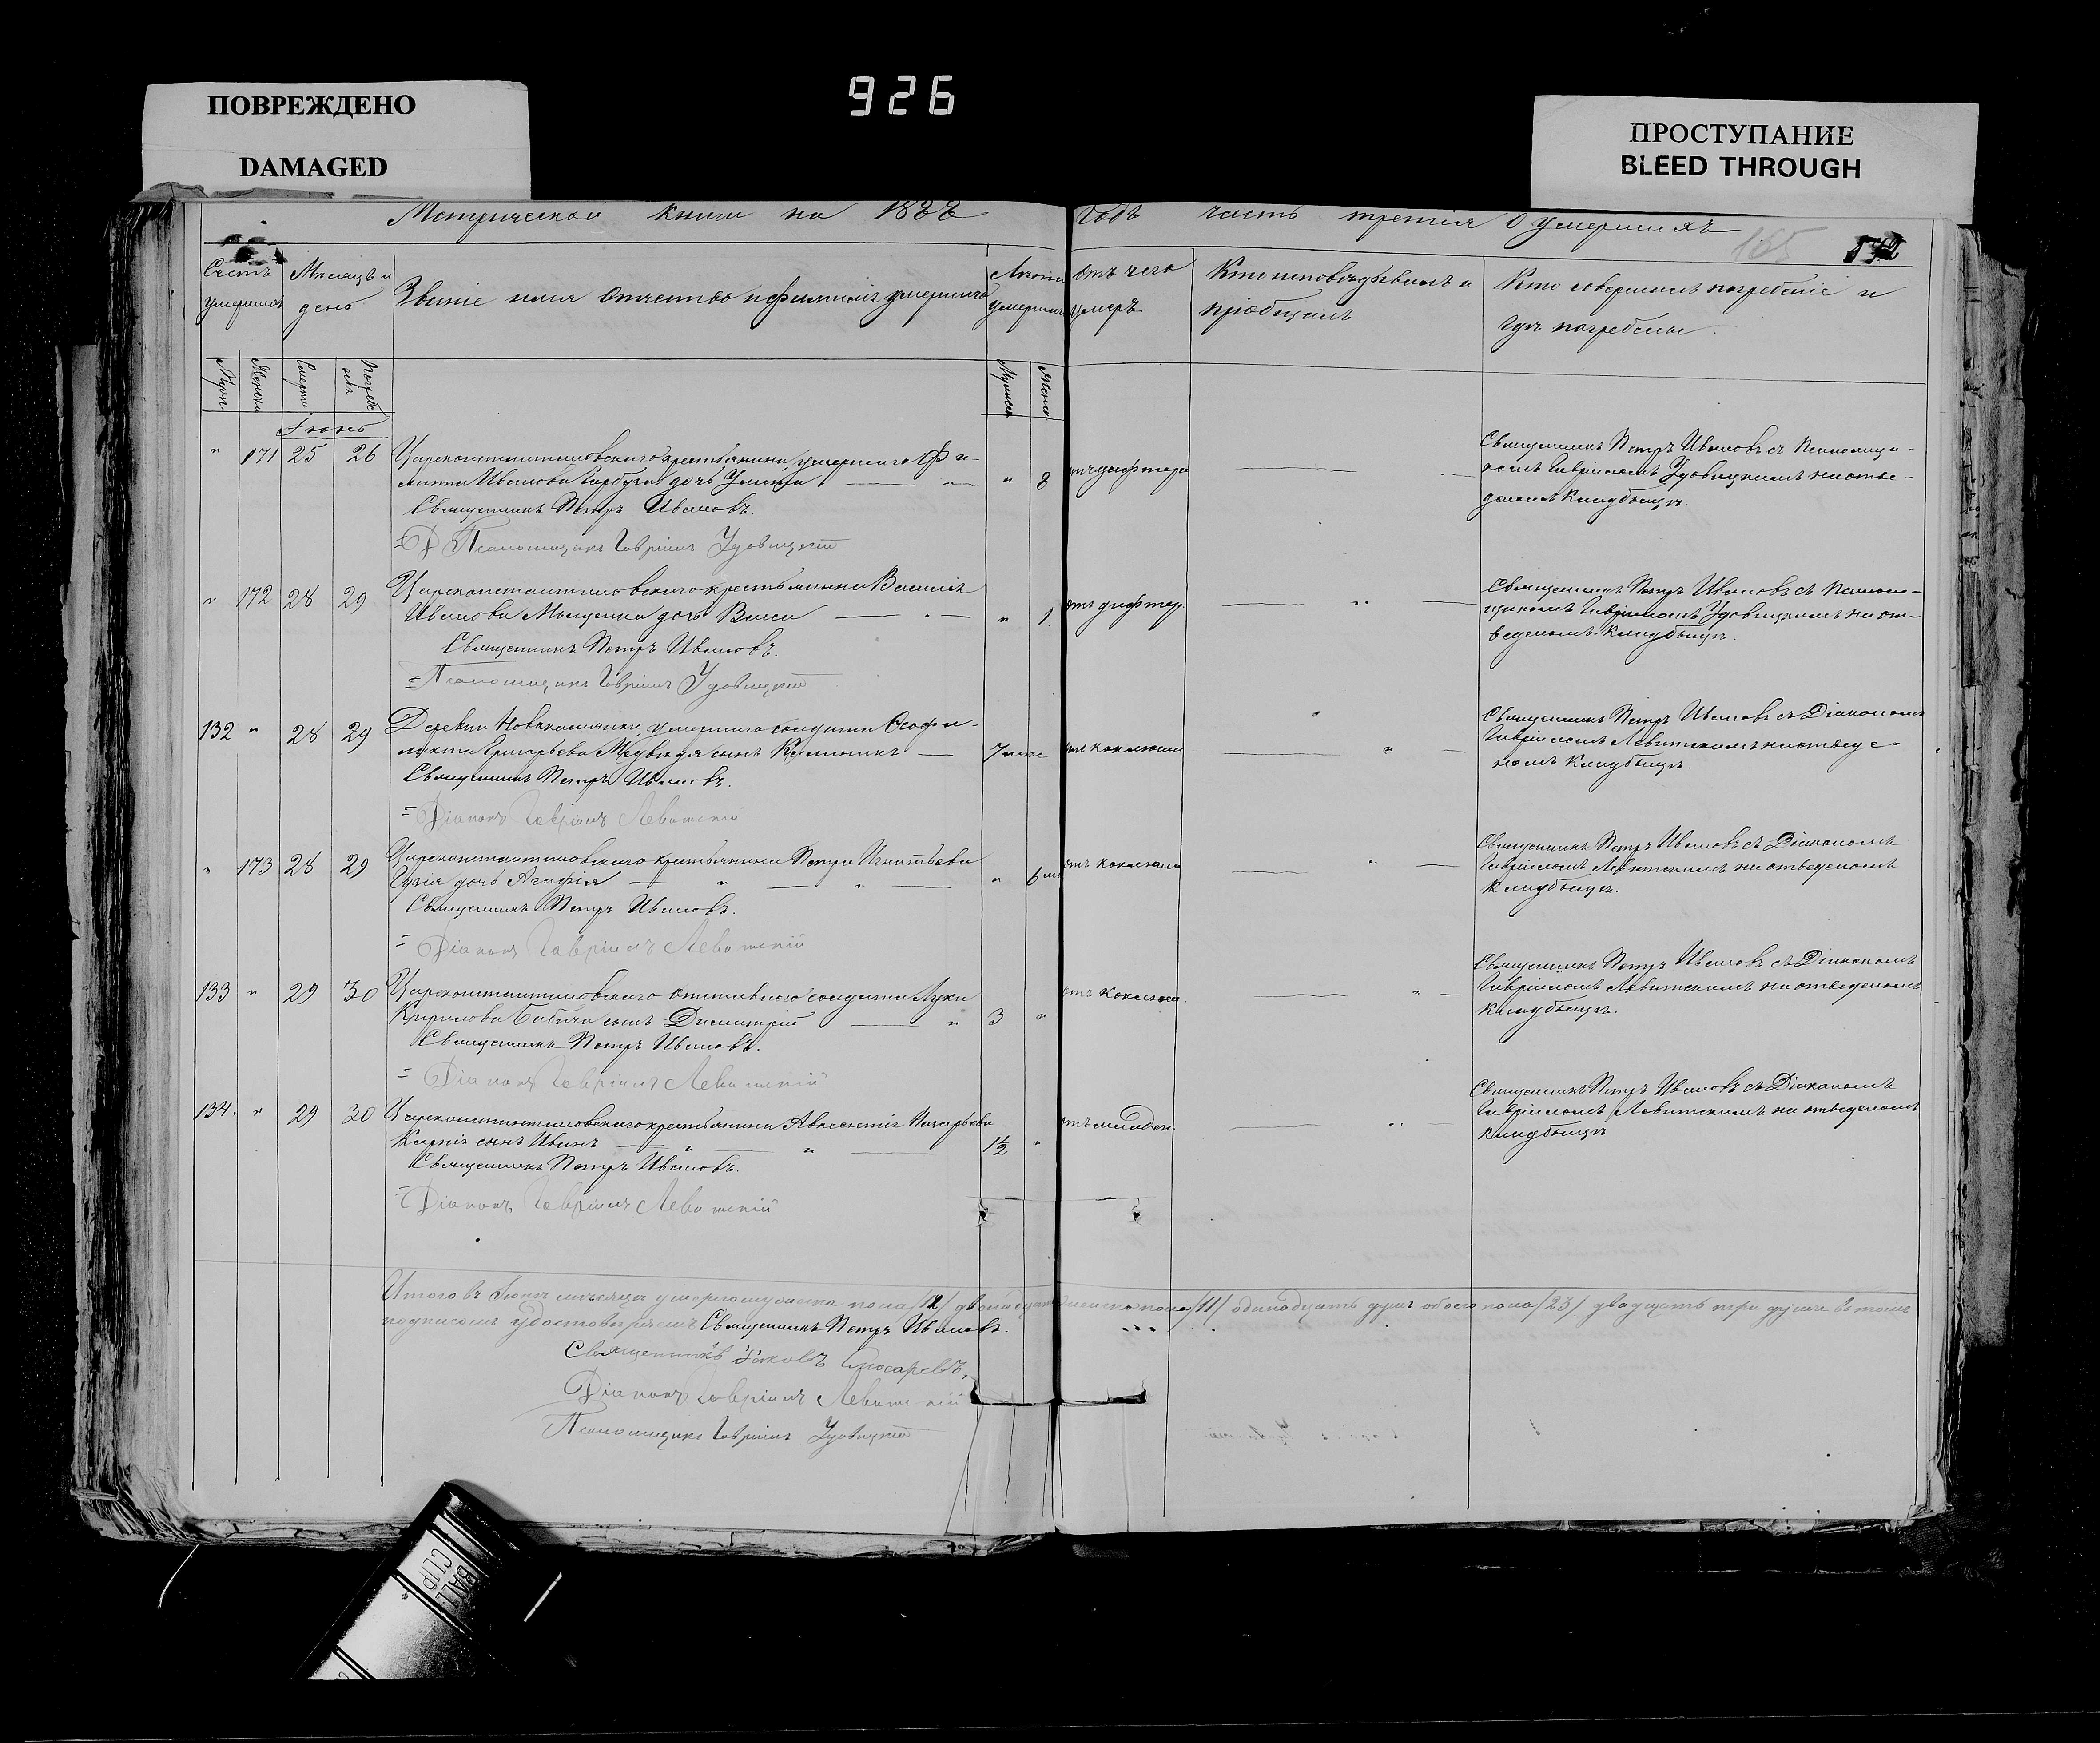 ПОВРЕЖДЕНО
DAMAGED
926
ПРОСТУПАНИЕ
BLEED THROUGH
Метрической книги на 1888 годъ часть третія О умершихъ
165
572
Счетъ умершихъ
Мѣсяцъ и день
Званіе имя отчество и фамилія умершаго
Лѣта умершаго
отъ чего умеръ
Кто исповѣдывалъ и пріобщалъ
Кто совершалъ погребеніе и гдѣ погребены.
Мужс.
Женски
Смерти.
Погребенія
Мужеск
Женск
Іюнь
" 171 25 26 Цареконстантиновскаго крестьянина, умершаго
Иванова Горбуна дочь " 8 отъ дифтера
Священникъ Петръ Ивановъ.
Псаломщикъ Гавріилъ Удовицкій
Священникъ Петръ Ивановъ съ Псаломщи-
комъ Гавріиломъ Удовицкимъ на отве-
деномъ кладбищѣ.
" 172 28 29 Цареконстантиновскаго крестьянина Василія
Иванова дочь Васса " 1 отъ дифтер.
Священникъ Петръ Ивановъ.
Псаломщикъ Гавріилъ Удовицкій
Священникъ Петръ Ивановъ съ Псалом-
щикомъ Гавріиломъ Удовицкимъ на от-
веденомъ кладбищѣ.
132 " 28 29 Деревни умершаго солдата Ѳеофи-
лакта Григорьева Медвѣдя сынъ 7 отъ коклюша
Священникъ Петръ Ивановъ.
Діаконъ Гавріилъ Левитскій
Священникъ Петръ Ивановъ съ Діакономъ
Гавріиломъ Левитскимъ на отведе-
номъ кладбищѣ.
" 173 28 29 Цареконстантиновскаго крестьянина Петра Игнатьева
дочь Агафія " 6 отъ коклюша
Священникъ Петръ Ивановъ.
Діаконъ Гавріилъ Левитскій
Священникъ Петръ Ивановъ съ Діакономъ
Гавріиломъ Левитскимъ на отведеномъ
кладбищѣ.
133 " 29 30 Цареконстантиновскаго отставнаго солдата Луки
Кирилова сынъ Димитрій " 3 " отъ коклюша.
Священникъ Петръ Ивановъ.
Діаконъ Гавріилъ Левитскій
Священникъ Петръ Ивановъ съ Діакономъ
Гавріиломъ Левитскимъ на отведеномъ
кладбищѣ.
134. " 29 30 Цареконстантиновскаго крестьянина Авксентія
сынъ Иванъ " 1½ " отъ младен.
Священникъ Петръ Ивановъ.
Діаконъ Гавріилъ Левитскій
Священникъ Петръ Ивановъ съ Діакономъ
Гавріиломъ Левитскимъ на отведеномъ
кладбищѣ
Итого въ Іюнѣ мѣсяцѣ умерло мужеска пола /12/ двѣнадцать женска пола /11/ одинадцать душъ обоего пола /23/ двадцать три души въ томъ
подписомъ удостовѣряемъ Священникъ Петръ Ивановъ.
Священникъ Іаковъ
Діаконъ Гавріилъ Левитскій
Псаломщикъ Гавріилъ Удовицкій
BALL
CLIP